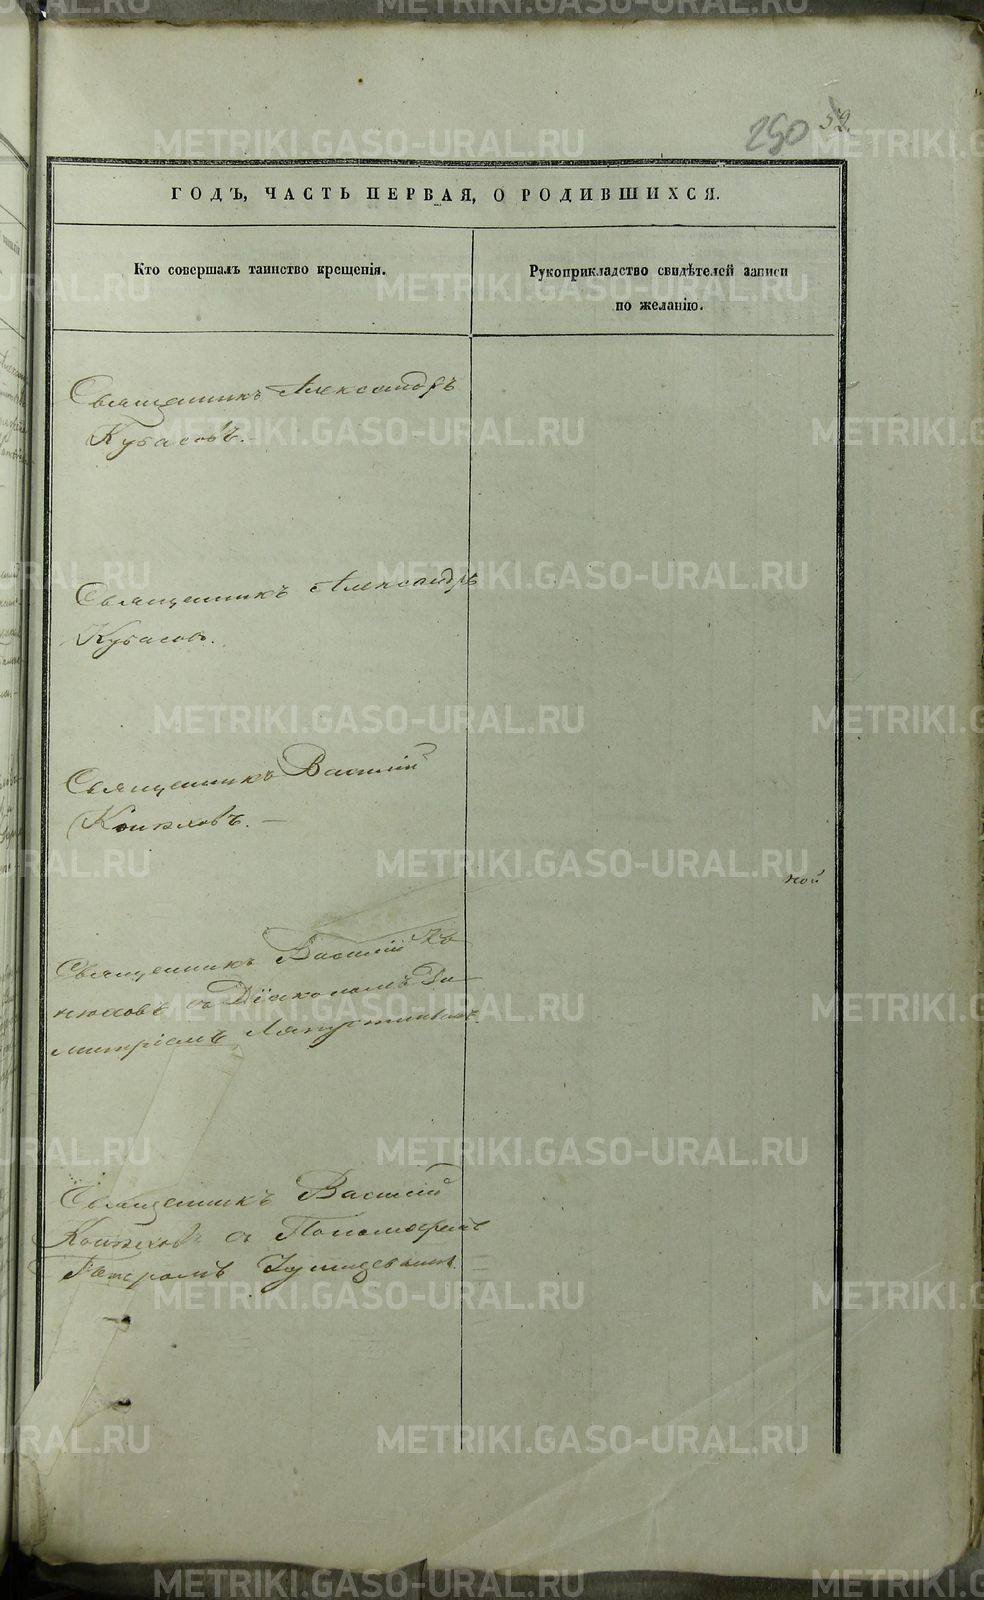 250 52.
ГОДЪ, ЧАСТЬ ПЕРВАЯ, О РОДИВШИХСЯ.
Кто совершалъ таинство крещенія.
Рукоприкладство свидѣтелей записи
по желанію.
Священникъ Александръ
Кубасовъ.
Священникъ Александръ
Кубасов.
Священникъ Василій
Конюховъ.
Священникъ Василій Ко-
нюховъ съ Діакономъ Ди-
митріемъ
Священникъ Василій
Конюховъ съ Пономаремъ
Петромъ
ной
METRIKI.GASO-URAL.RU